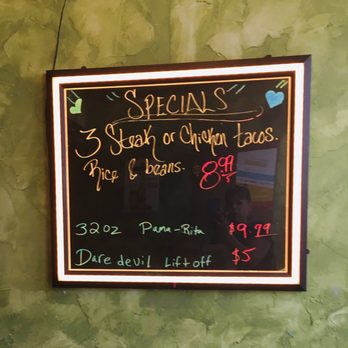 "SPECIALS"
3 Steak or Chicken tacos.
Rice & beans. $8.99
32oz Pama-Rita $9.99
Dare devil Liftoff $5